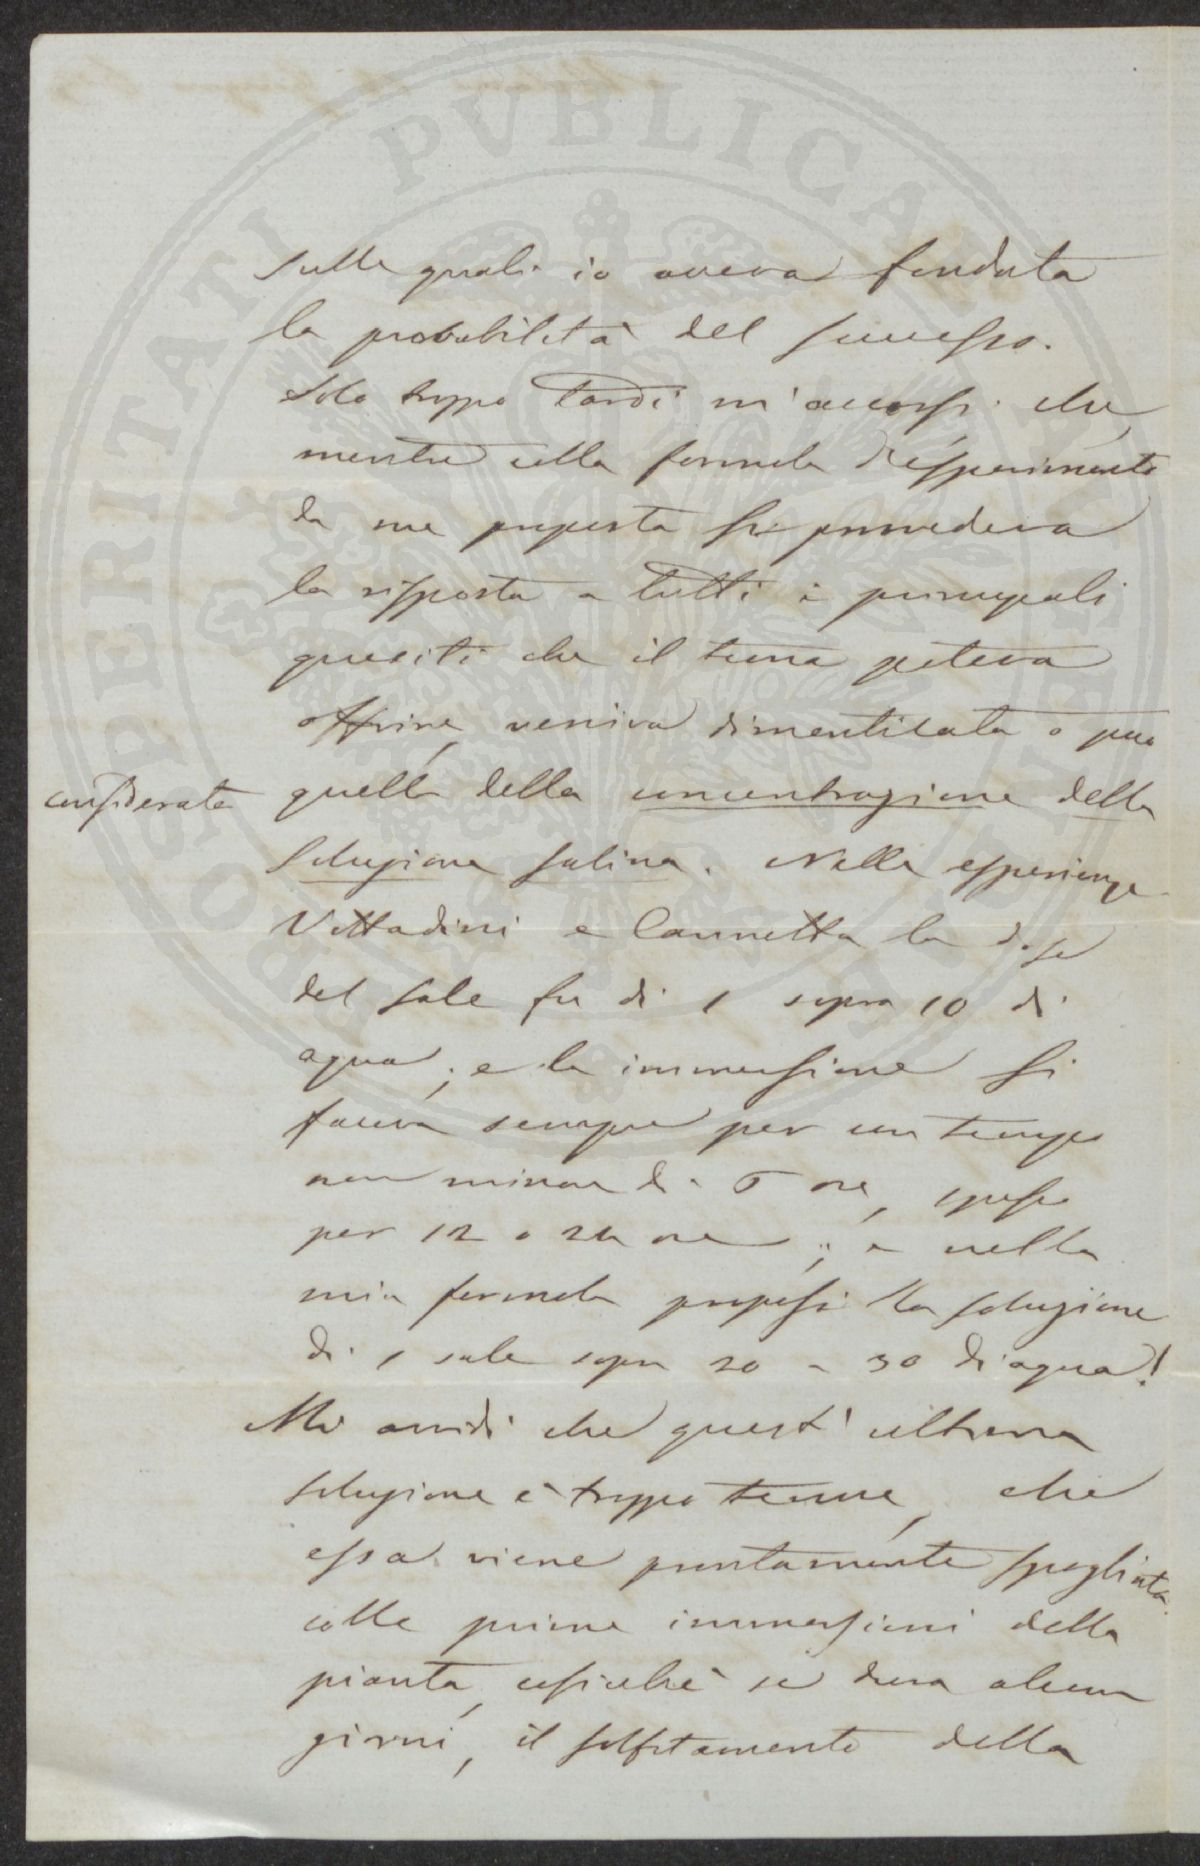 sulle quali io aveva fondata
la probabilità del successo.
Solo troppo tardi m'accorsi che,
mentre colla formola d'esperimento
da me proposta si provvedeva
la risposta a tutti i principali
quesiti che il tema poteva
offrire, veniva dimenticata o poco
considerata quella della concentrazione della
soluzione salina. Nelle esperienze
Vittadini e Cannetta la dose
del sale fu di 1 sopra 10 di
aqua; e la immersione si
faceva sempre per un tempo
non minore di 6 ore, spesso
per 12 o 24 ore; e nella
mia formola proposi la soluzione
di 1 sale sopra 20 a 30 di aqua!
Mi avvidi che quest'ultima
soluzione è troppo tenue, che
essa viene prontamente spogliata
colle prime immersioni della
pianta, cosicchè se dura alcuni
giorni, il solfitamento della
PROSPERITATI PVBLICAE